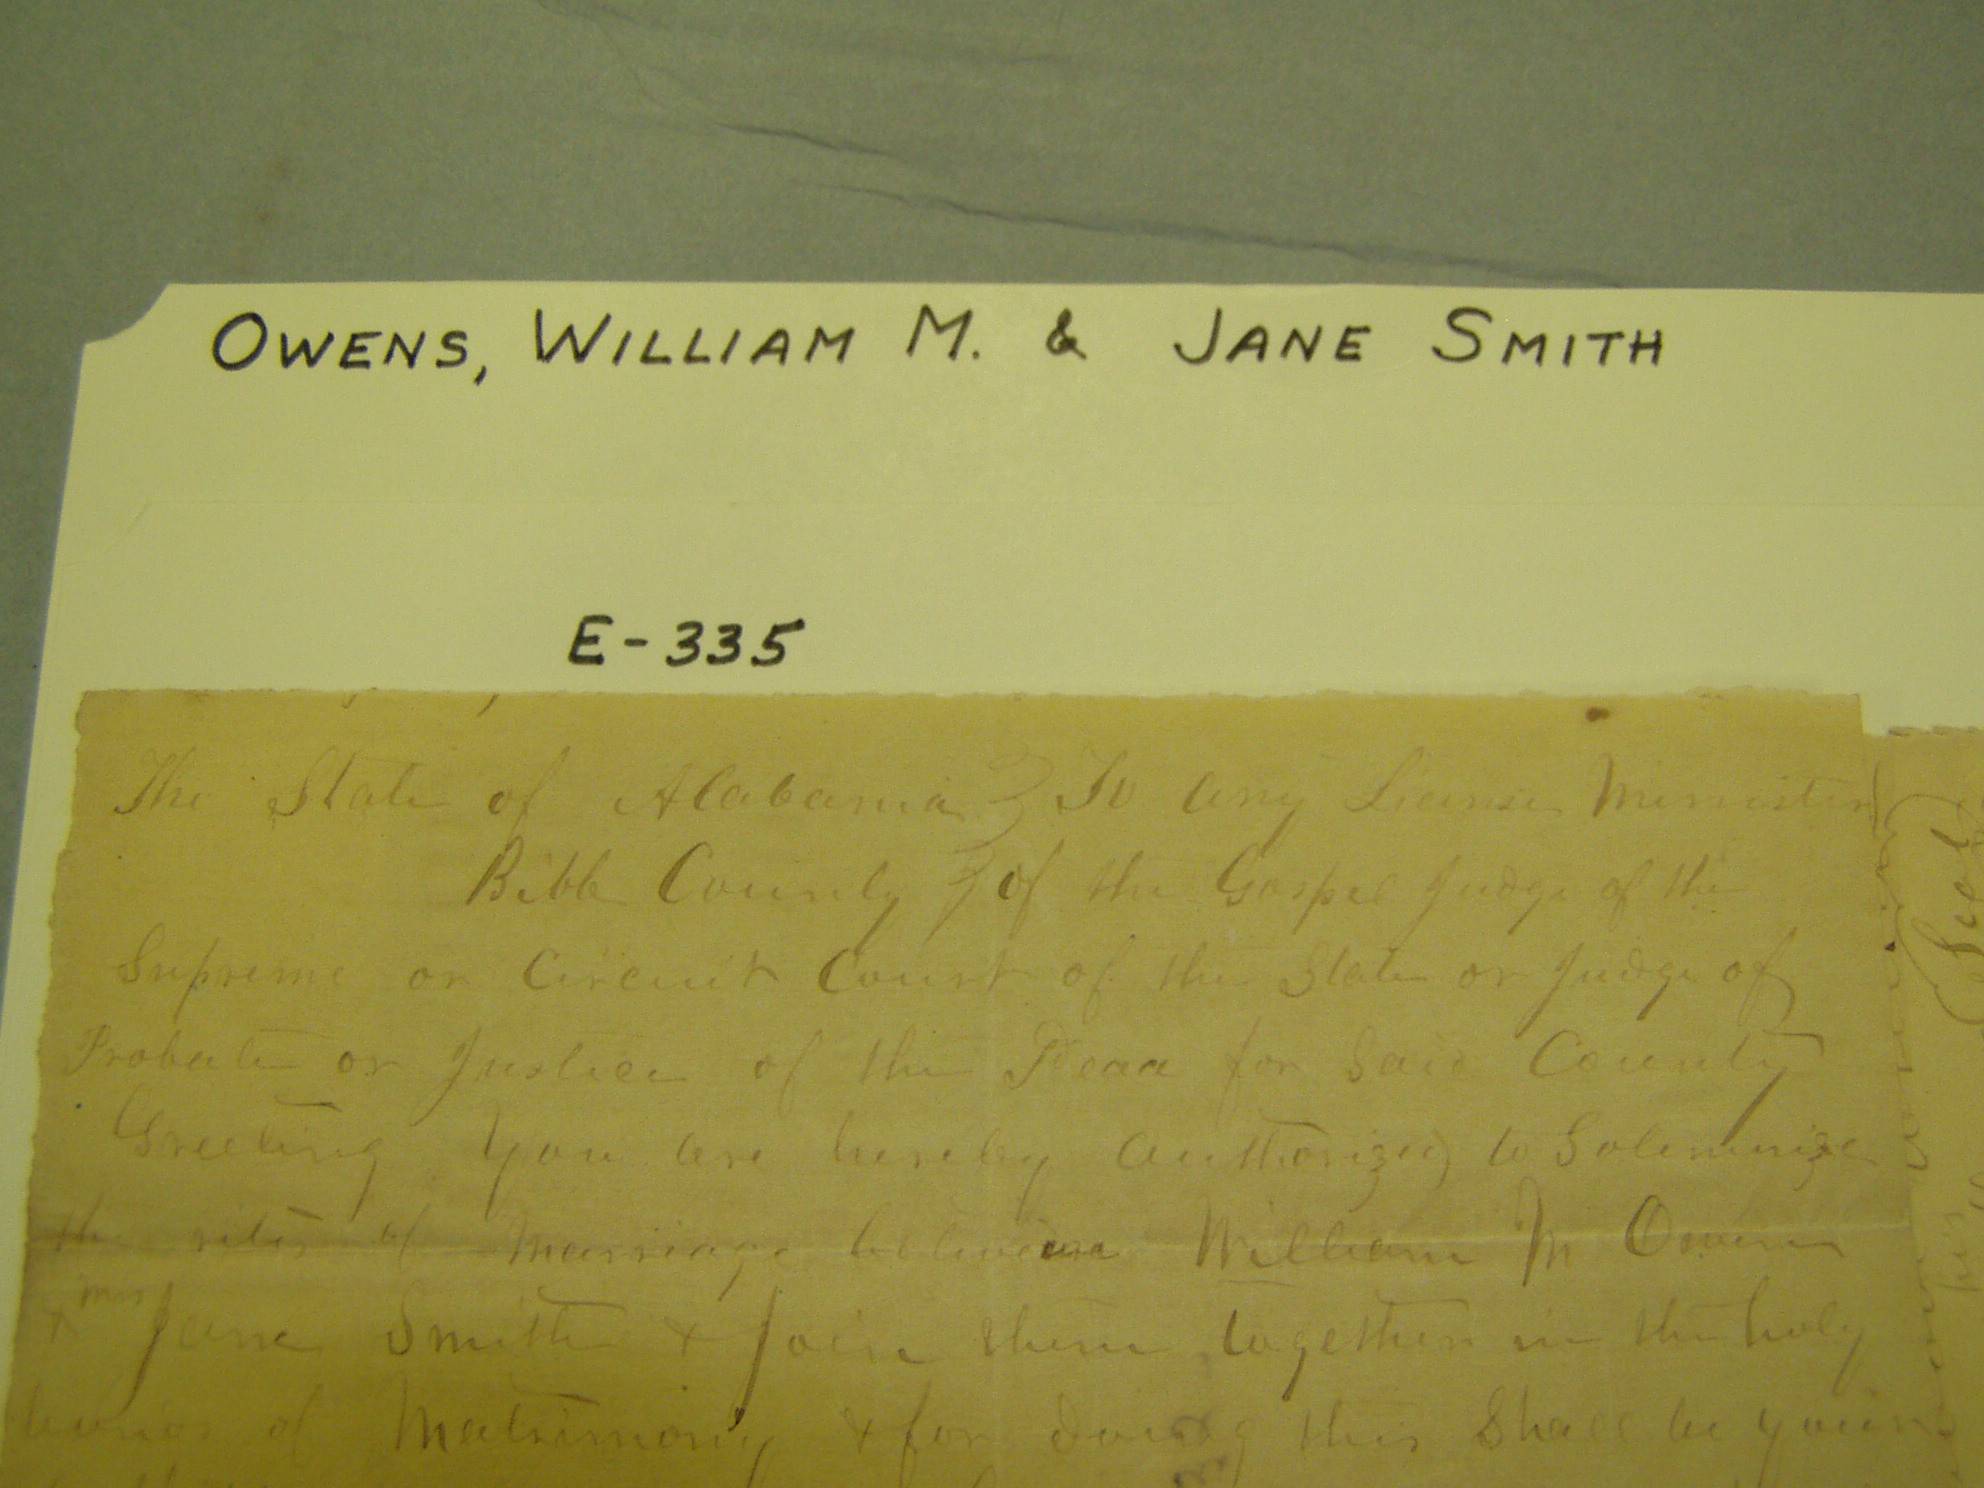 OWENS, WILLIAM M. & JANE SMITH
E-335
The State of Alabama } To any License Minister
Bibb County } of the Gospel Judge of the
Supreme or Circuit Court of the State or Judge of
Probate or Justice of the Peac for Said County
Greeting You are hereby Authorized to Solemnize
the rites of Marriage between William M Owens
& mrs Jane Smith & Join them together in the holy
of Matrimony & for doing this Shall be your